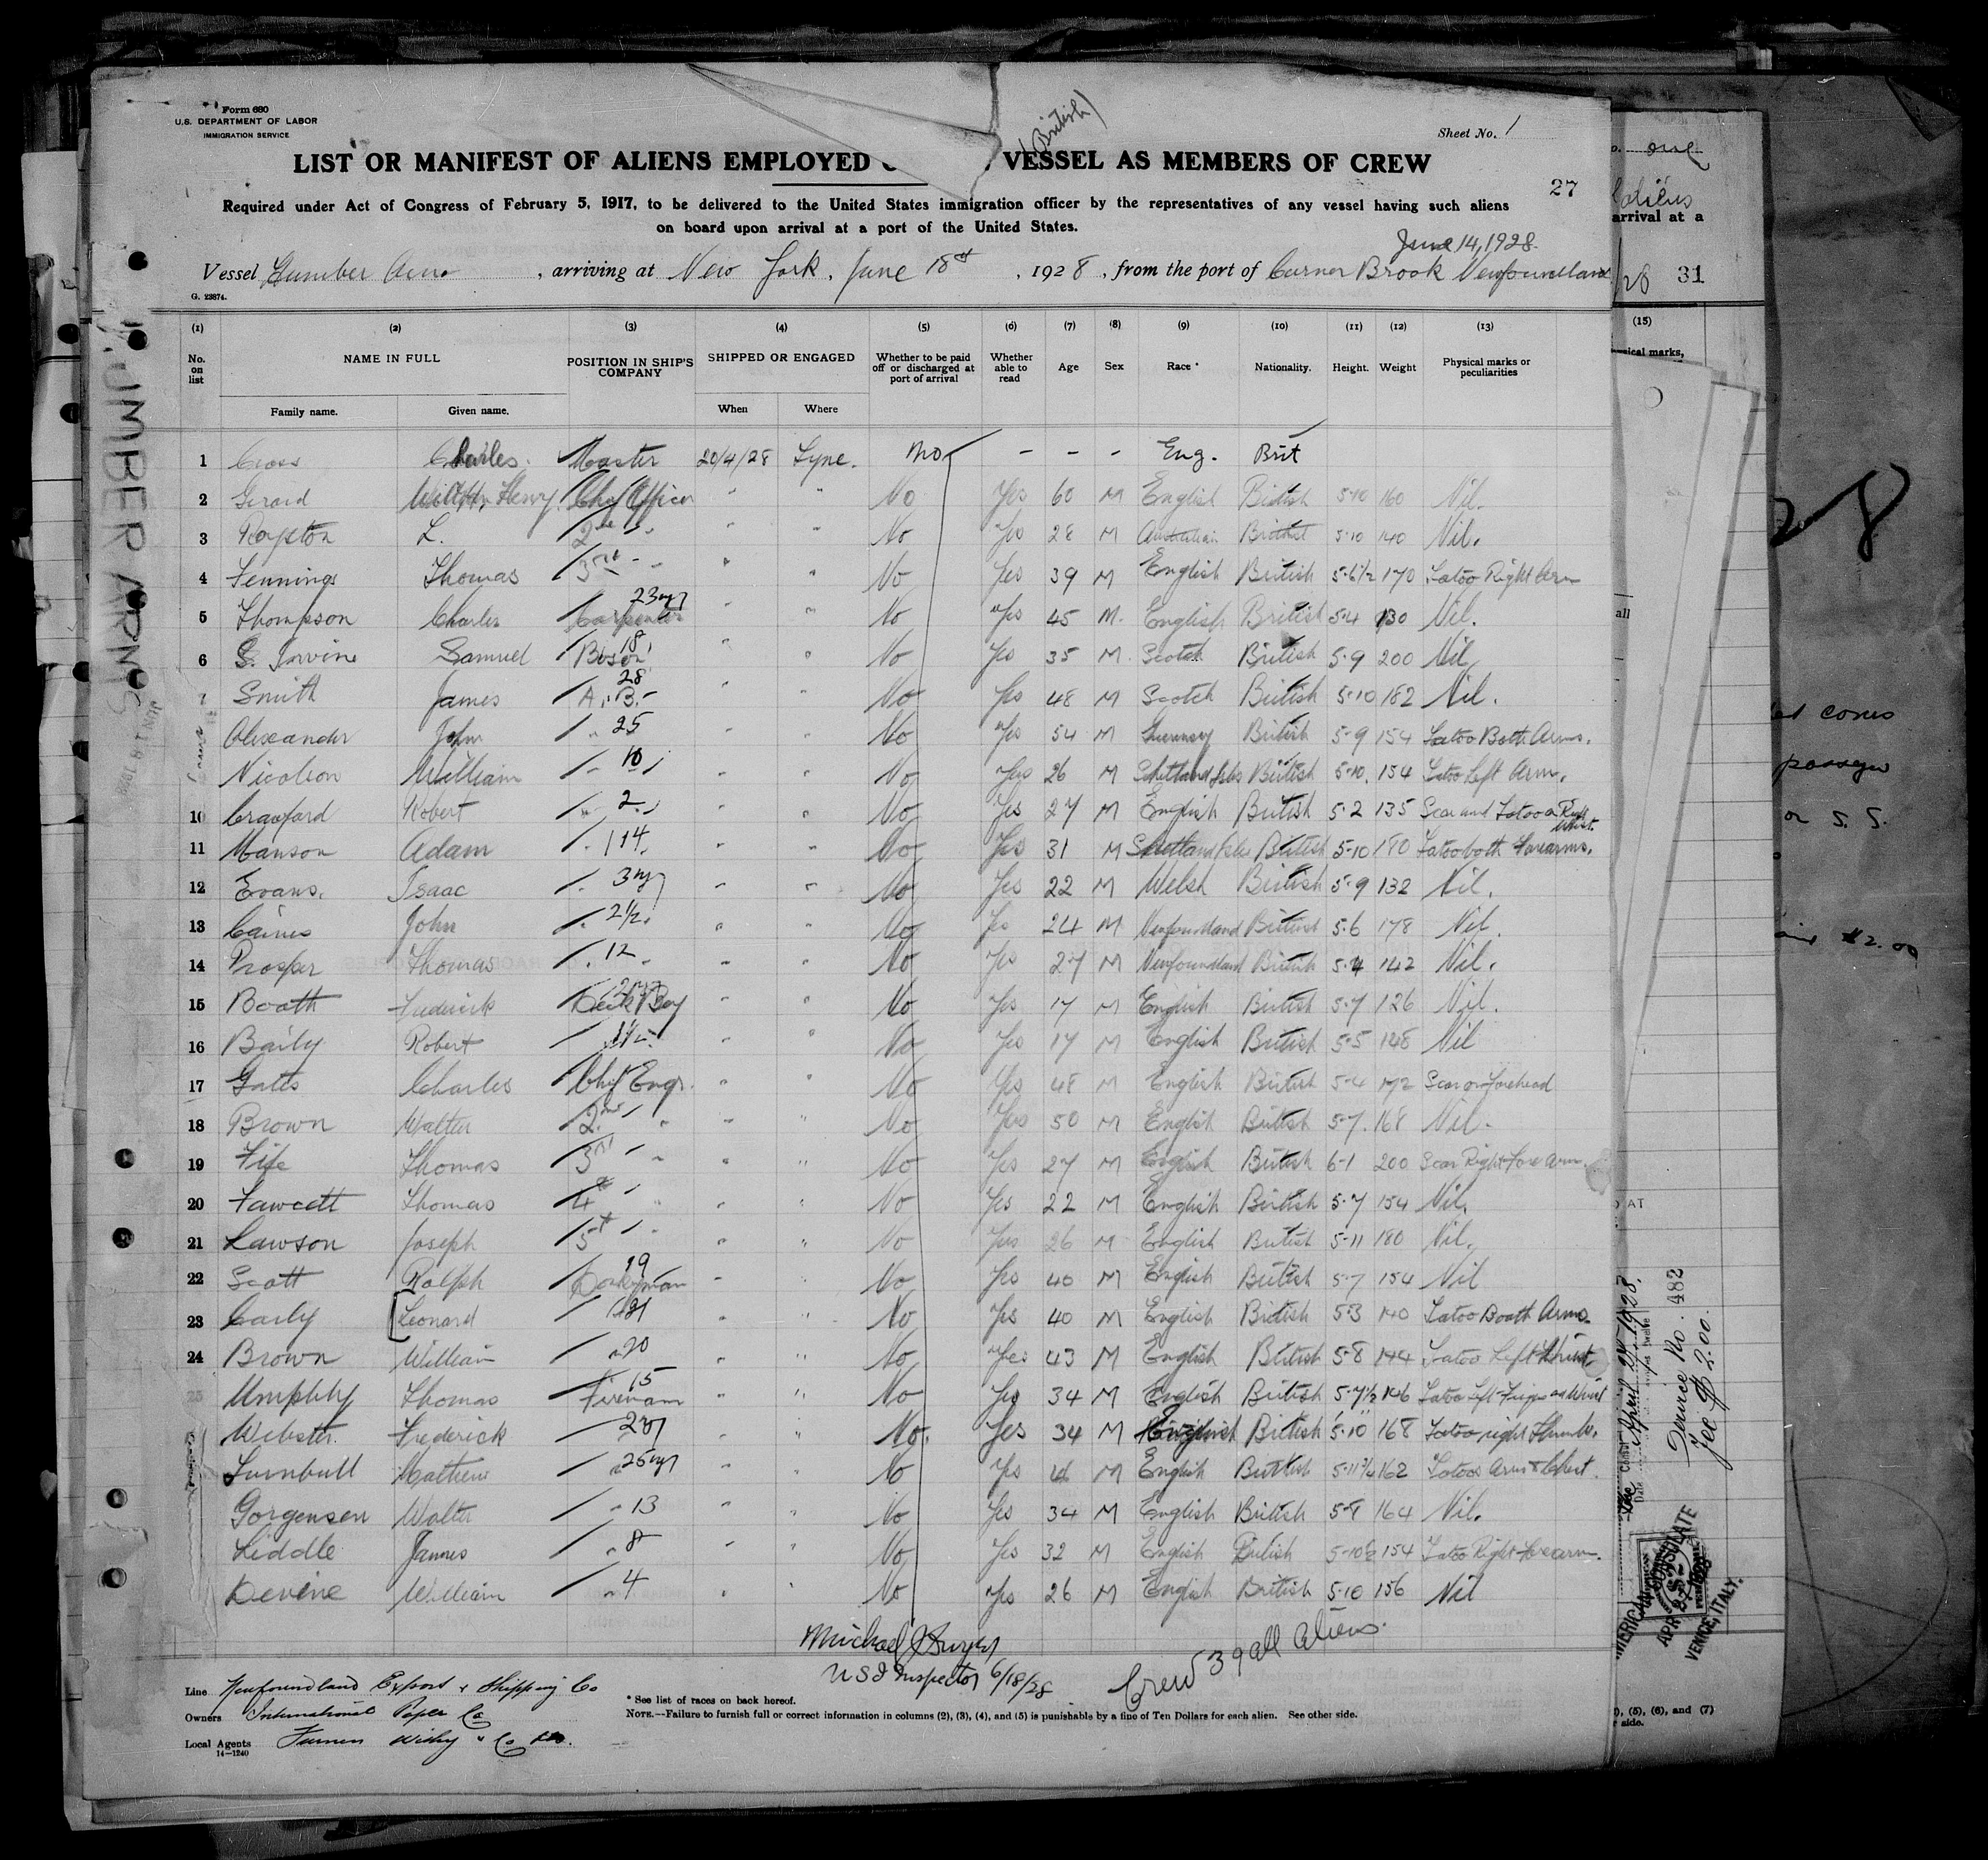 Form 680
U.S. DEPARTMENT OF LABOR
IMMIGRATION SERVICE
(British)
Sheet No. 1
LIST OR MANIFEST OF ALIENS EMPLOYED VESSEL AS MEMBERS OF CREW
27
Required under Act of Congress of February 5, 1917, to be delivered to the United States immigration officer by the representatives of any vessel having such aliens
on board upon arrival at a port of the United States.
June 14, 1928.
Vessel Humber Arm, arriving at New York, June 18th, 1928, from the port of Corner Brook Newfoundland
G. 23874.
(1) (2) (3) (4) (5) (6) (7) (8) (9) (10) (11) (12) (13)
No. on list NAME IN FULL POSITION IN SHIP'S COMPANY SHIPPED OR ENGAGED Whether to be paid off or discharged at port of arrival Whether able to read Age Sex Race * Nationality. Height. Weight Physical marks or peculiarities
Family name. Given name. When Where
1 Cross Charles. Master 20/4/28 Tyne. No - - - Eng. Brit
2 Gerard William Henry Chf Officer " " No Yes 60 M English British 5-10 160 Nil.
3 Royston L. 2nd " " " No Yes 28 M Australian British 5-10 140 Nil.
4 Jennings Thomas 3rd " " " No Yes 39 M English British 5-6½ 170 Tatoo Right Arm
5 Thompson Charles Carpenter 23 " " No Yes 45 M. English British 5-4 130 Nil.
6 S. Irvine Samuel Bosen 18 " " No Yes 35 M. Scotch British 5-9 200 Nil
7 Smith James A.B. 28 " " No Yes 48 M Scotch British 5-10 182 Nil.
Alexander John " 25 " " No Yes 54 M Guernsey British 5-9 154 Tatoo Both Arms.
Nicolson William " 10 " " No Yes 26 M Shetland Isles British 5-10. 154 Tatoo Left Arm.
10 Crawford Robert " 2 " " No Yes 27 M English British 5-2 135 Scar and Tatoo Right Wrist.
11 Manson Adam " 14 " " No Yes 31 M Shetland Isles British 5-10 180 Tatoo both Forearms.
12 Evans. Isaac " 3 " " No Yes 22 M Welsh British 5-9 132 Nil.
13 Caines John " 2½ " " No Yes 24 M Newfoundland British 5-6 178 Nil.
14 Prosper Thomas " 12 " " No Yes 27 M Newfoundland British 5-4 142 Nil.
15 Booth Frederick Deck Boy " " No Yes 17 M English British 5-7 126 Nil.
16 Baily Robert " " " No Yes 17 M English British 5-5 148 Nil
17 Gates Charles Chf Engr. " " No Yes 48 M English British 5-4 172 Scar on Forehead
18 Brown Walter 2nd " " " No Yes 50 M English British 5-7. 168 Nil.
19 Fife Thomas 3rd " " " No Yes 27 M English British 6-1 200 Scar Right Fore arm.
20 Fawcett Thomas 4th " " " No Yes 22 M English British 5-7 154 Nil.
21 Lawson Joseph 5th " " " No Yes 26 M English British 5-11 180 Nil.
22 Scott Ralph Donkeyman 19 " " No Yes 40 M English British 5-7 154 Nil
23 Carly Leonard " 21 " " No Yes 40 M English British 5-3 140 Tatoo Booth Arms.
24 Brown William " 20 " " No Yes 43 M English British 5-8 144 Tatoo Left Wrist
25 Umphley Thomas Fireman 15 " " No Yes 34 M English British 5-7½ 146 Tatoo Left Finger and Wrist
Webster. Frederick " " " No. Yes 34 M English British 5-10 168 Tatoo right Thumb.
Turnbull Mathew " 25 " " No Yes M English British 5-11¾ 162 Tatoos Arm & Chest.
Gorgensen Walter " 13 " " No Yes 34 M English British 164 Nil.
Liddle James " 8 " " No Yes 32 M English British 5-10½ 154 Tatoo Right Forearm.
Devine William " 4 " " No Yes 26 M English British 5-10 156 Nil
Michael J.
U S I Inspector 6/18/28
Crew 39 all aliens.
Line Newfoundland Export & Shipping Co
Owners International Paper Co
Local Agents Furness Withy & Co Ltd.
14-1240
* See list of races on back hereof.
NOTE.—Failure to furnish full or correct information in columns (2), (3), (4), and (5) is punishable by a fine of Ten Dollars for each alien. See other side.
HUMBER ARM
arrival at a
/28 31
(15)
ical marks,
all
D AT
April 27-1928.
Service No. 482
Fee $2.00.
AMERICAN CONSULATE
APR 27 1928
VENICE, ITALY.
), (5), (6), and (7)
r side.
28
or S. S.
$2.00